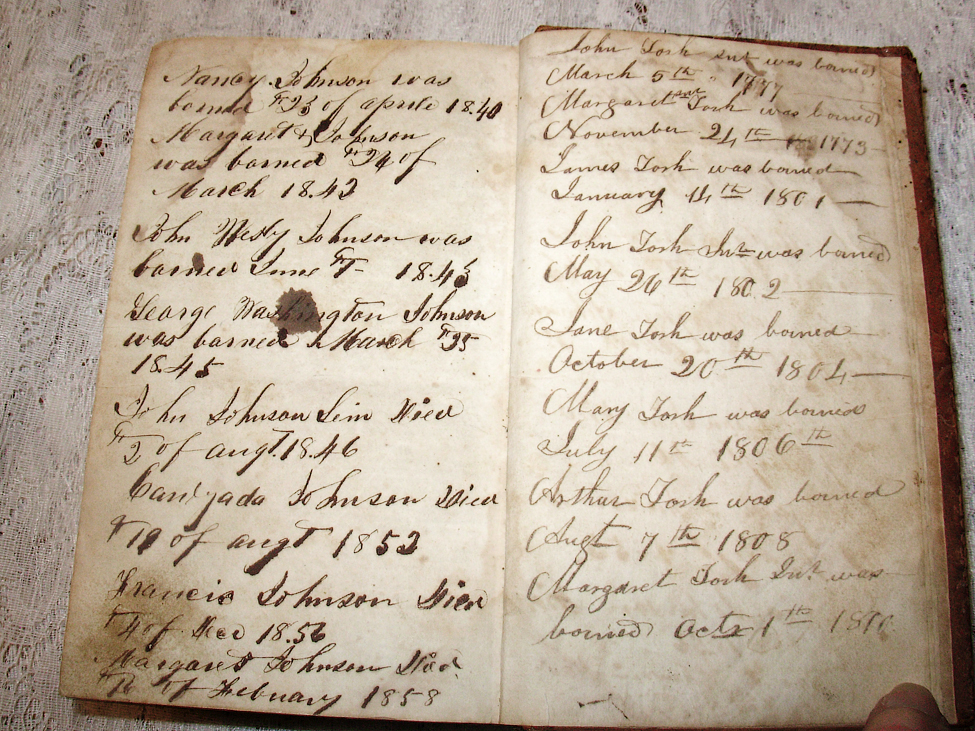 Nancy Johnson was
borned 23 of aprile 18.40
Margaret Johnson
was borned 24 of
March 18.42
John Wesly Johnson was
borned June 18.43
George Washington Johnson
was borned March 25
18.45
John Johnson Died
2 of augt. 18.46
Johnson Died
19 of augt 1852
Francis Johnson Died
4 of Dec 18.56
Margaret Johnson Died
of February 1858
John Tosh was borned
March 5th 1777
Margaret Tosh was borned
November 24th 1773
James Tosh was borned
January 14th 1801
John Tosh Jnr was borned
May 26th 1802
Jane Tosh was borned
October 20th 1804
Mary Tosh was borned
July 11th 1806th
Arthur Tosh was borned
Augt 7th 1808
Margaret Tosh Jnr was
borned Octr 1th